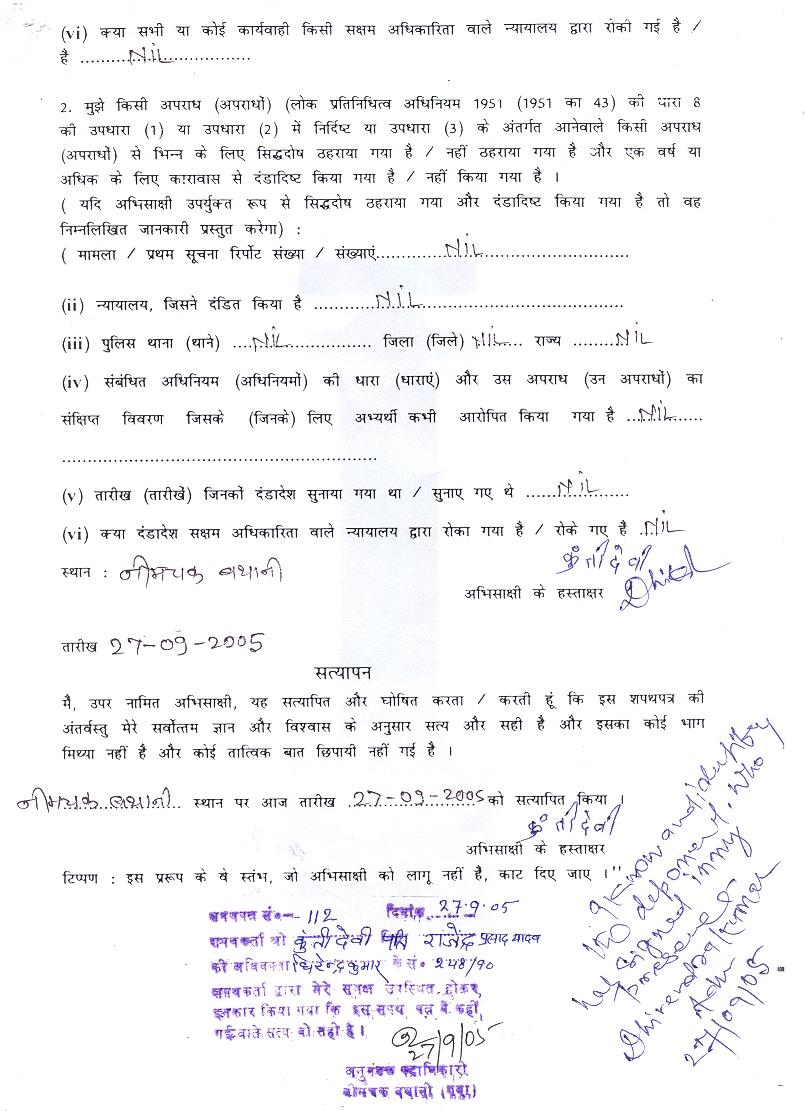 (vi) क्या सभी या कोई कार्यवाही किसी सक्षम अधिकारिता वाले न्यायालय द्वारा रोकी गई है /
है ........NIL....................
2. मुझे किसी अपराध (अपराधों) (लोक प्रतिनिधित्व अधिनियम 1951 (1951 का 43) की धारा 8
की उपधारा (1) या उपधारा (2) में निर्दिष्ट या उपधारा (3) के अंतर्गत आनेवाले किसी अपराध
(अपराधों) से भिन्न के लिए सिद्धदोष ठहराया गया है / नहीं ठहराया गया है और एक वर्ष या
अधिक के लिए कारावास से दंडादिष्ट किया गया है / नहीं किया गया है ।
( यदि अभिसाक्षी उपर्युक्त रूप से सिद्धदोष ठहराया गया और दंडादिष्ट किया गया है तो वह
निम्नलिखित जानकारी प्रस्तुत करेगा) :
( मामला / प्रथम सूचना रिर्पोट संख्या / संख्याएं............NIL..........................
(ii) न्यायालय, जिसने दंडित किया है ...........NIL..................................
(iii) पुलिस थाना (थाने) ....NIL................ जिला (जिले) NIL.... राज्य ........NIL
(iv) संबंधित अधिनियम (अधिनियमों) की धारा (धाराएं) और उस अपराध (उन अपराधों) का
संक्षिप्त विवरण जिसके (जिनके) लिए अभ्यर्थी कभी आरोपित किया गया है ...NIL........
....................................................
(v) तारीख (तारीखें) जिनकों दंडादेश सुनाया गया था / सुनाए गए थे ......NIL.........
(vi) क्या दंडादेश सक्षम अधिकारिता वाले न्यायालय द्वारा रोका गया है / रोके गए है .NIL
स्थान : नीमचक बथानी
कुंती देवी
अभिसाक्षी के हस्ताक्षर
तारीख 27-09-2005
सत्यापन
मै, उपर नामित अभिसाक्षी, यह सत्यापित और घोषित करता / करती हूं कि इस शपथपत्र की
अंतर्वस्तु मेरे सर्वोत्तम ज्ञान और विश्वास के अनुसार सत्य और सही है और इसका कोई भाग
मिथ्या नहीं है और कोई तात्विक बात छिपायी नहीं गई है ।
नीमचक बथानी.... स्थान पर आज तारीख .27-09-2005 को सत्यापित किया ।
कुंती देवी
अभिसाक्षी के हस्ताक्षर
टिप्पण : इस प्ररूप के वे स्तंभ, जो अभिसाक्षी को लागू नहीं है, काट दिए जाए ।"
I know and identify
the deponent. who
has signed in my
presence
Dhirendra Kumar
Adv
27/09/05
शपथपत्र सं०-112 दिनांक 27.9.05
शपथकर्ता श्री कुंती देवी पति राजेंद्र प्रसाद यादव
की अधिवक्ता धिरेन्द्र कुमार के सं० 248/90
शपथकर्ता द्वारा मेरे समक्ष उपस्थित होकर,
इकरार किया गया कि इस शपथ पत्र में कही
गई बाते सत्य वो सही है ।
27/9/05
अनुमंडल पदाधिकारी
नीमचक बथानी (गया)